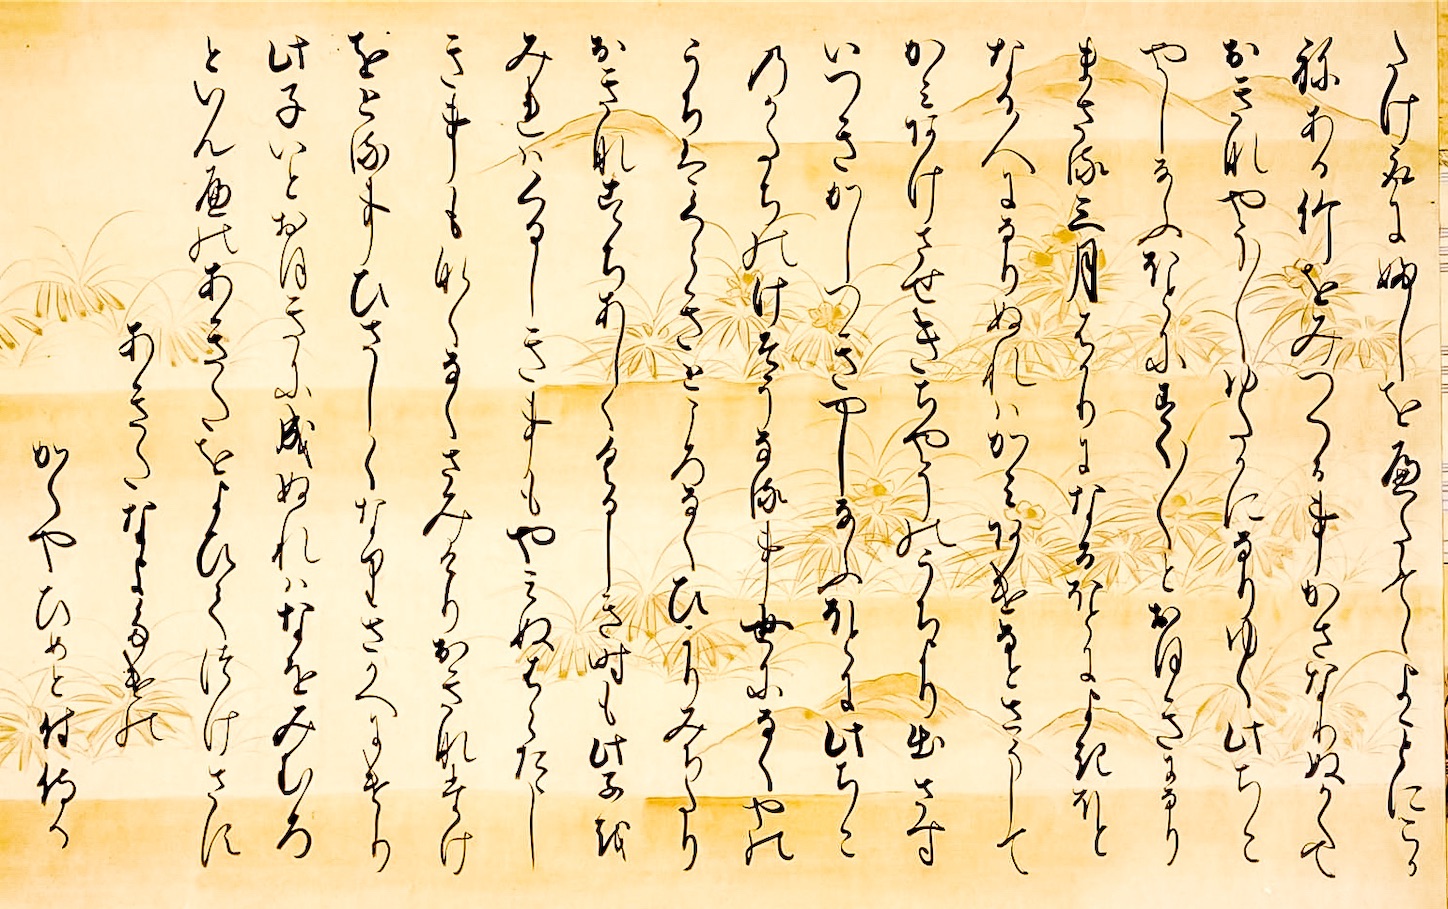 たけ取にふしをへたてゝよことにこか
ねある竹をみつくる事かさなりぬかくて
おきなやう〱ゆたかになりゆく此ちこ
やしなふほとにすく〱とおほきになり
まさる三月はかりになるほとによきほと
なる人になりぬれはかみあけなとさうして
かみあけさせきちやうのうちより出さす
いつきかしつきやしなふほとに此ちこ
のかたちのけそうなる事世になくやの
うちはくらきところなくひかりみちたり
おきなこゝちあしくくるしき時も此子を
みれはくるしき事もやみぬはらたゝし
き事もなくなくさみけりおきなたけ
をとる事ひさしくなりさかへにけり
此子いとおほきに成ぬれはなをみむろ
といんへのあきたをよひてつけさす
あきたなよたけの
かくやひめと付侍る